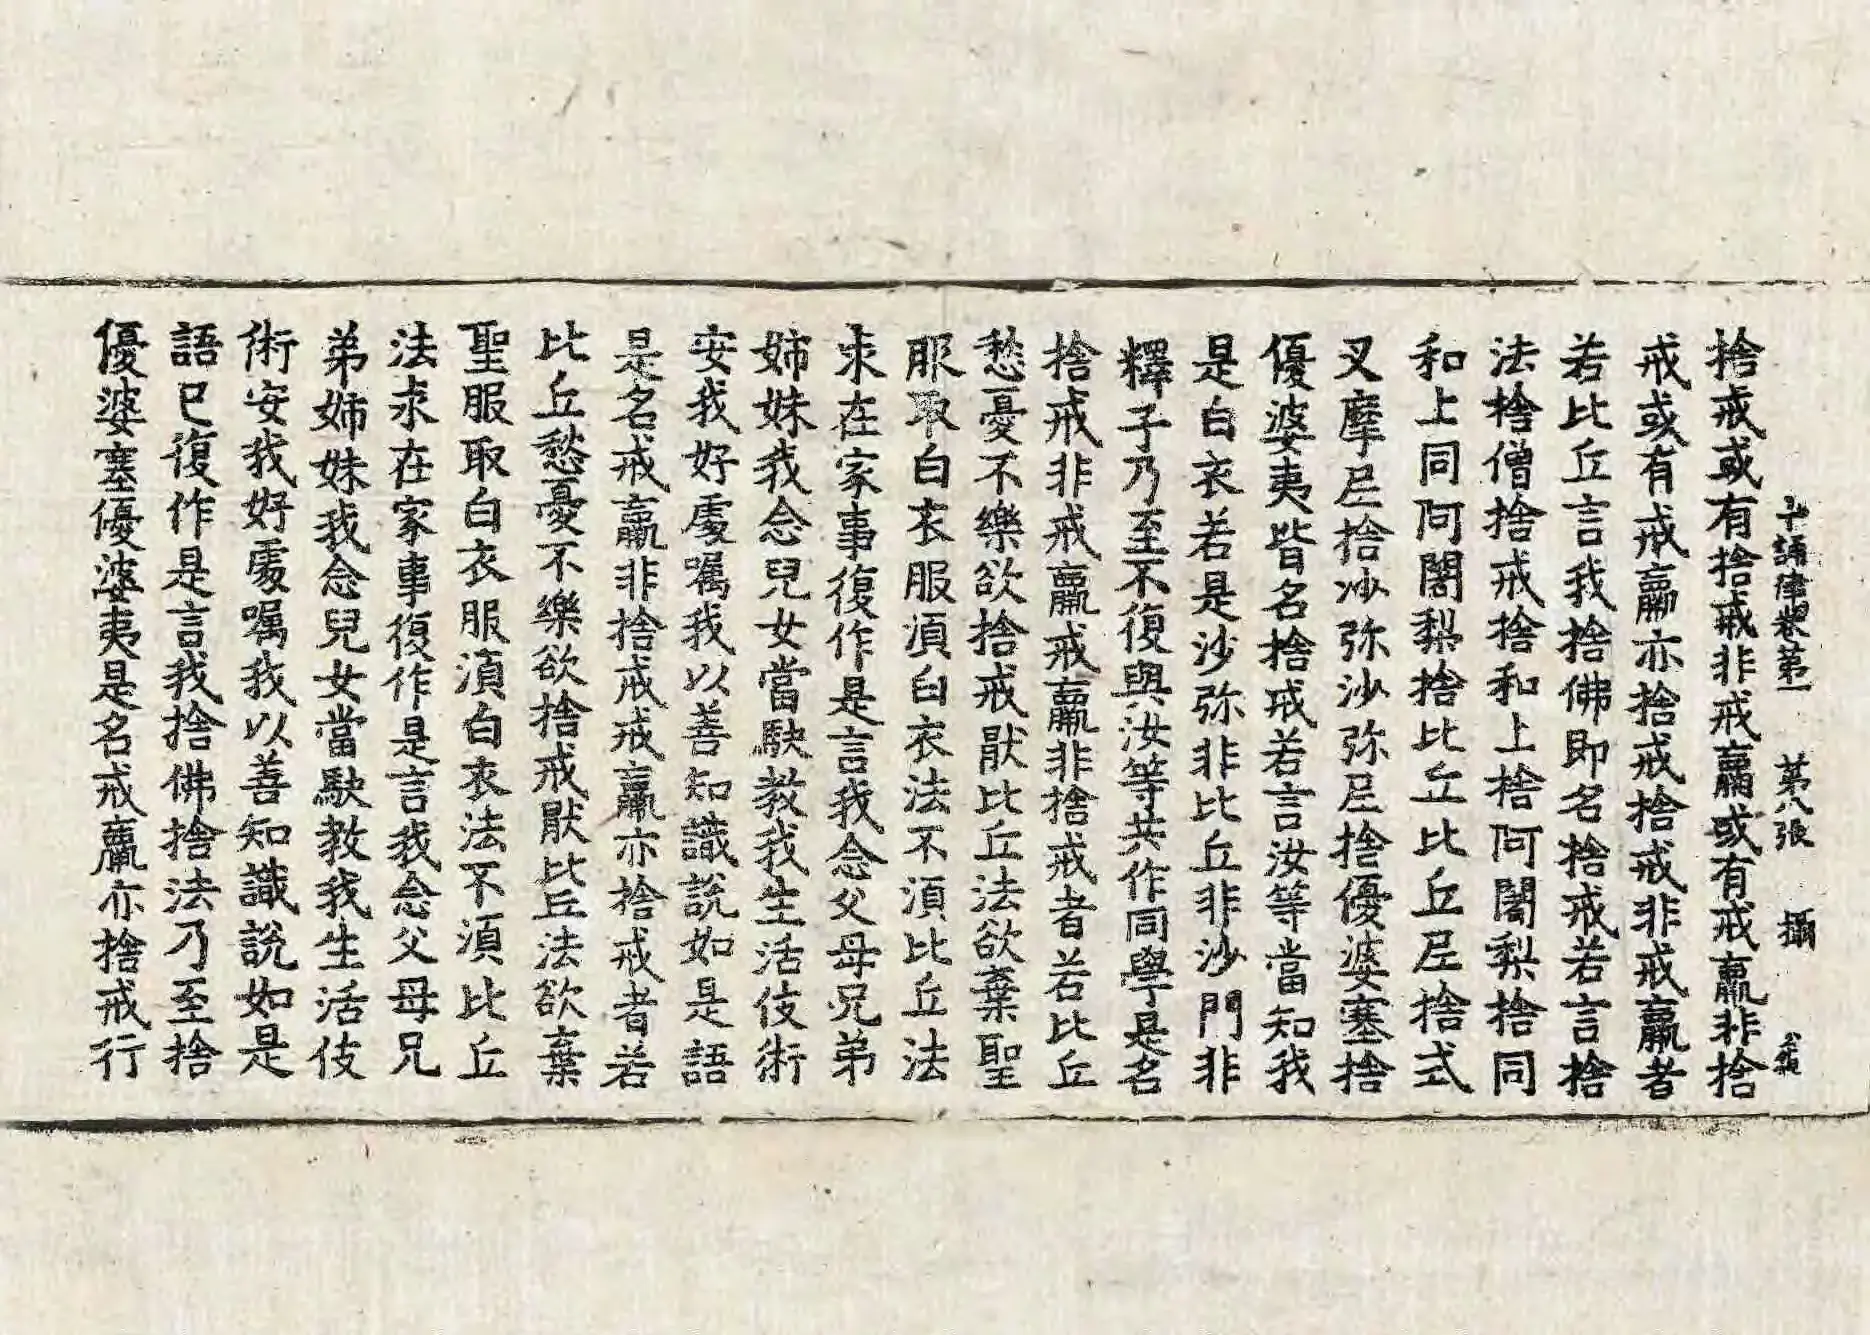 十誦律卷第一 第八張 攝
捨戒或有捨戒非戒羸或有戒羸非捨
戒或有戒羸亦捨戒捨戒非戒羸者
若比丘言我捨佛即名捨戒若言捨
法捨僧捨戒捨和上捨阿闍梨捨同
和上同阿闍梨捨比丘比丘尼捨式
叉摩尼捨沙弥沙弥尼捨優婆塞捨
優婆夷皆名捨戒若言汝等當知我
是白衣若是沙弥非比丘非沙門非
釋子乃至不復與汝等共作同學是名
捨戒非戒羸戒羸非捨戒者若比丘
愁憂不樂欲捨戒猒比丘法欲棄聖
服取白衣服湏白衣法不湏比丘法
求在家事復作是言我念父母兄弟
姉妹我念兒女當駃教我生活伎術
安我好處囑我以善知識說如是語
是名戒羸非捨戒戒羸亦捨戒者若
比丘愁憂不樂欲捨戒猒比丘法欲棄
聖服取白衣服湏白衣法不湏比丘
法求在家事復作是言我念父母兄
弟姉妹我念兒女當駃教我生活伎
術安我好處囑我以善知識說如是
語已復作是言我捨佛捨法乃至捨
優婆塞優婆夷是名戒羸亦捨戒行